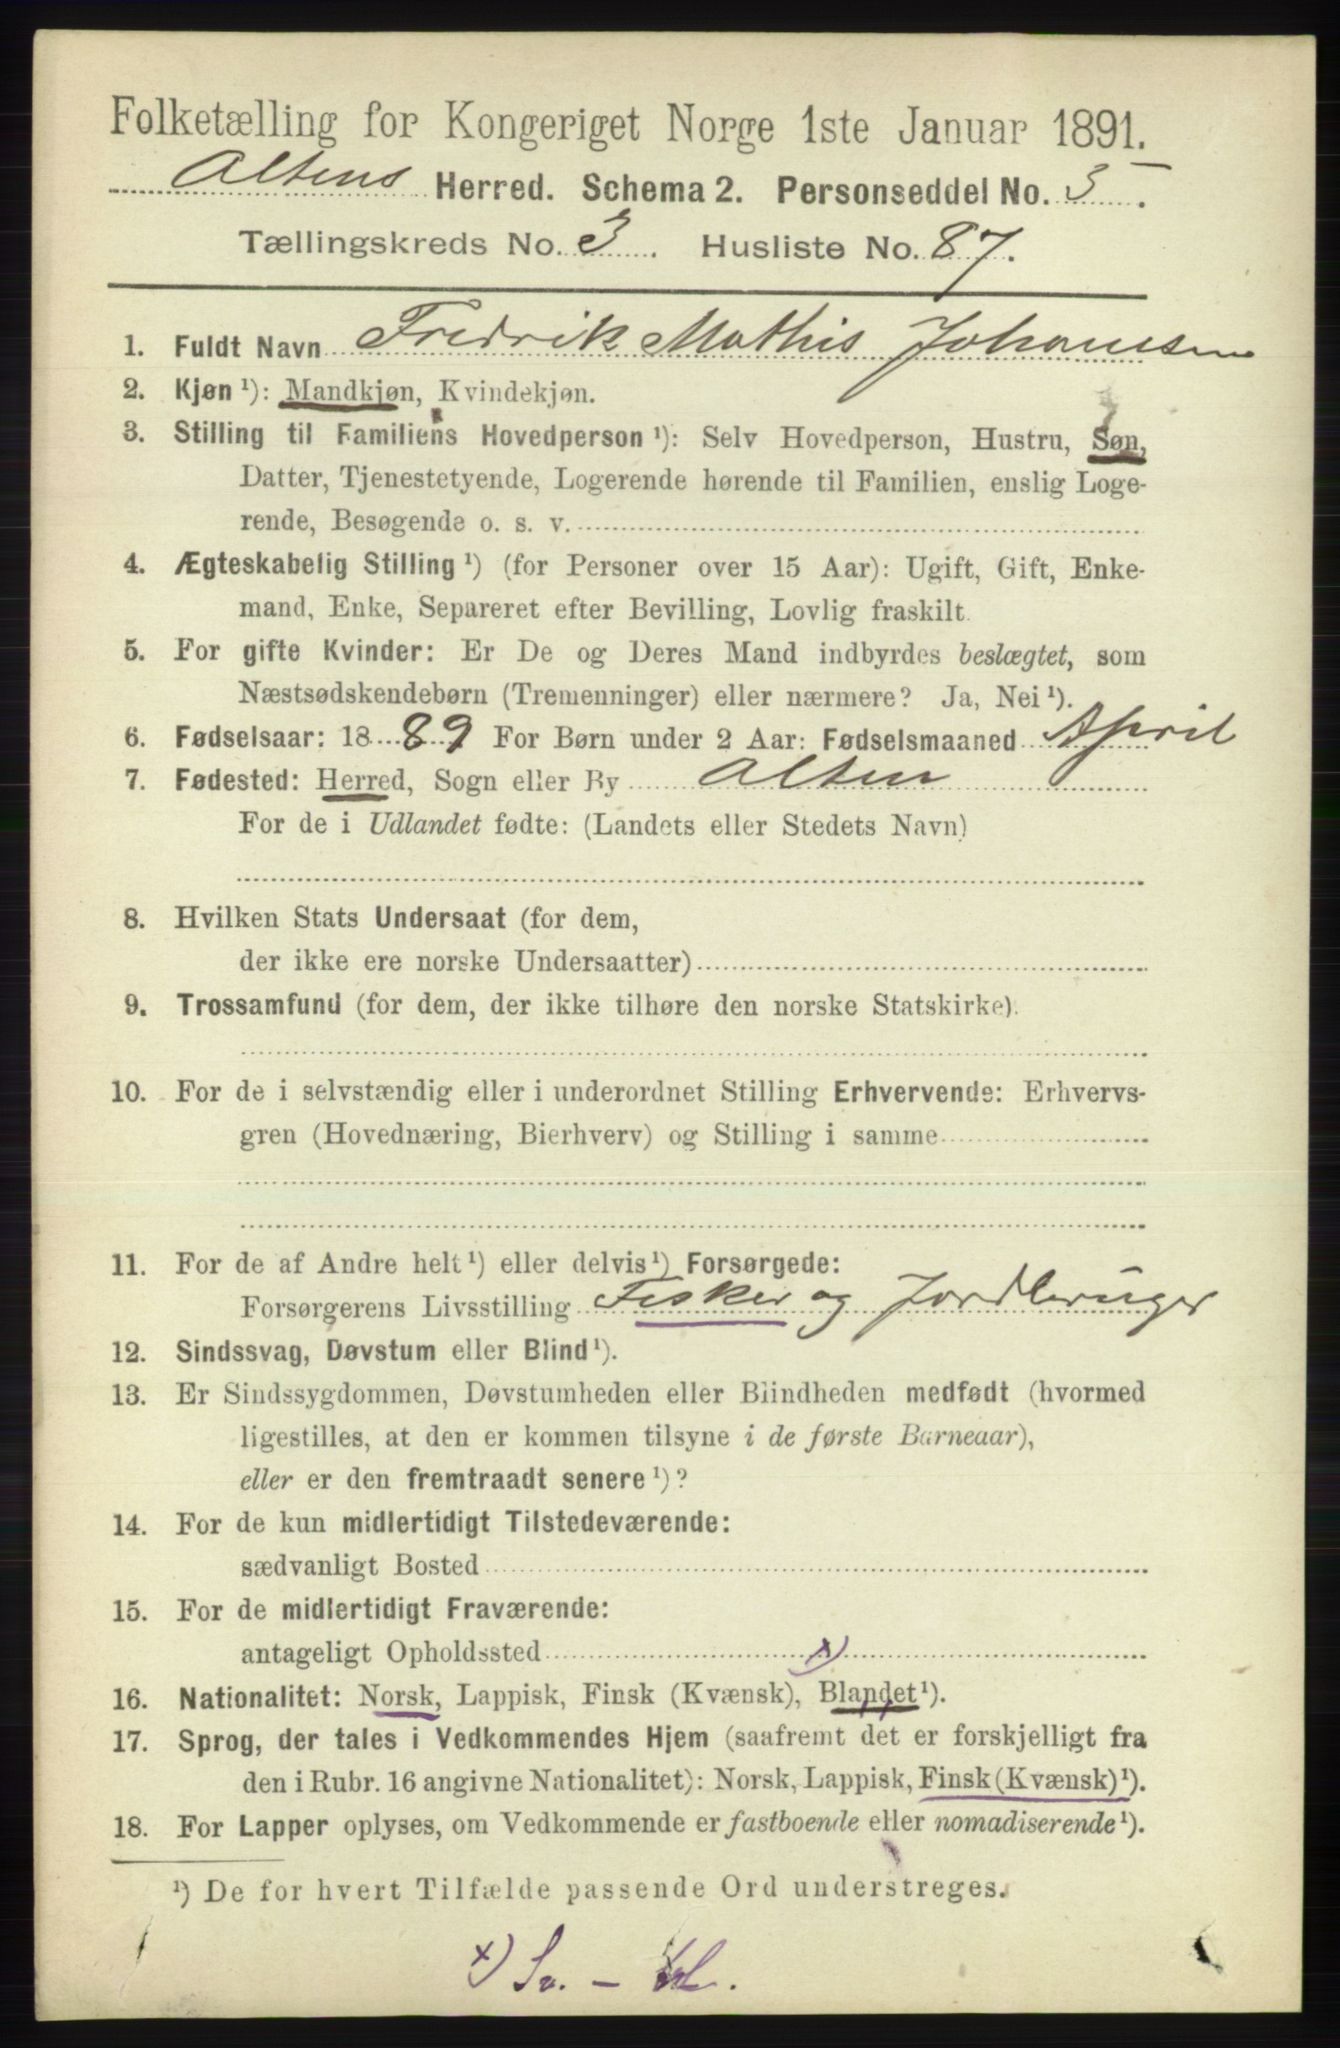 Folketælling for Kongeriget Norge 1ste Januar 1891.
Altens Herred. Schema 2. Personseddel No. 5.
Tællingskreds No. 3. Husliste No. 87.
1. Fuldt Navn Fredrik Mathis Johansen
2. Kjøn ¹): Mandkjøn, Kvindekjøn.
3. Stilling til Familiens Hovedperson ¹): Selv Hovedperson, Hustru, Søn,
Datter, Tjenestetyende, Logerende hørende til Familien, enslig Loge-
rende, Besøgende o. s. v.
4. Ægteskabelig Stilling ¹) (for Personer over 15 Aar): Ugift, Gift, Enke-
mand, Enke, Separeret efter Bevilling, Lovlig fraskilt.
5. For gifte Kvinder: Er De og Deres Mand indbyrdes beslægtet, som
Næstsødskendebørn (Tremenninger) eller nærmere? Ja, Nei ¹).
6. Fødselsaar: 1889 For Børn under 2 Aar: Fødselsmaaned April
7. Fødested: Herred, Sogn eller By Alten
For de i Udlandet fødte: (Landets eller Stedets Navn)
8. Hvilken Stats Undersaat (for dem,
der ikke ere norske Undersaatter)
9. Trossamfund (for dem, der ikke tilhøre den norske Statskirke).
10. For de i selvstændig eller i underordnet Stilling Erhvervende: Erhvervs-
gren (Hovednæring, Bierhverv) og Stilling i samme
11. For de af Andre helt ¹) eller delvis ¹) Forsørgede:
Forsørgerens Livsstilling Fisker og Jordbruger
12. Sindssvag, Døvstum eller Blind ¹).
13. Er Sindssygdommen, Døvstumheden eller Blindheden medfødt (hvormed
ligestilles, at den er kommen tilsyne i de første Barneaar),
eller er den fremtraadt senere ¹)?
14. For de kun midlertidigt Tilstedeværende:
sædvanligt Bosted
15. For de midlertidigt Fraværende:
antageligt Opholdssted x)
16. Nationalitet: Norsk, Lappisk, Finsk (Kvænsk), Blandet ¹).
17. Sprog, der tales i Vedkommendes Hjem (saafremt det er forskjelligt fra
den i Rubr. 16 angivne Nationalitet): Norsk, Lappisk, Finsk (Kvænsk) ¹).
18. For Lapper oplyses, om Vedkommende er fastboende eller nomadiserende ¹).
¹) De for hvert Tilfælde passende Ord understreges.
x)